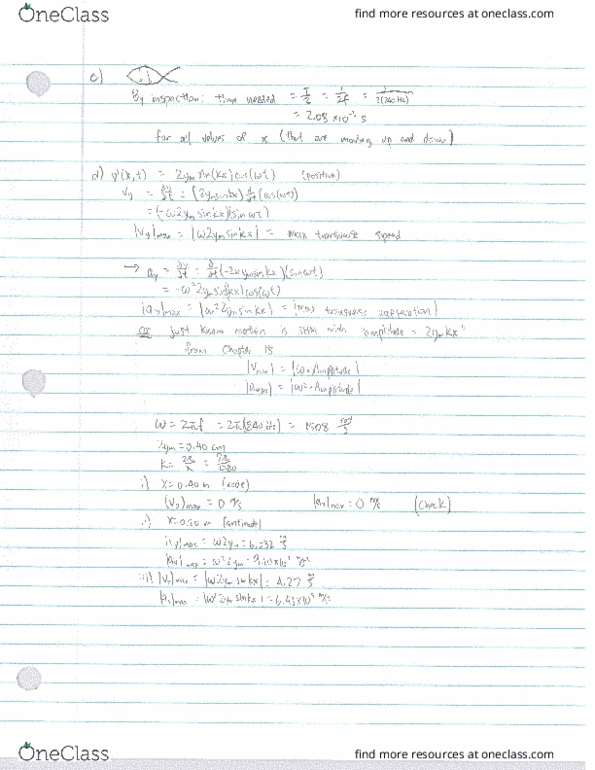 OneClass
find more resources at oneclass.com
c)
By inspection: time needed = T/2 = 1/2f = 1/2(240 Hz)
= 2.08 x10⁻³ s
for all values of x (that are moving up and down)
d) y'(x,t) = 2ym sin(kx) cos(ωt) (positive)
vy = ∂y/∂t = (2ym sin kx) ∂/∂t (cos(ωt)
= (-ω2ym sin kx)(sin ωt)
|Vy|max = |ω2ym sin kx| = max transverse speed
→ ay = ∂v/∂t = ∂/∂t (-2ωym sin kx)(sin ωt)
= -ω²2ym sin(kx) cos(ωt)
|ay|max = |ω²2ym sin kx| = |max transverse acceleration|
OR just know motion is SHM with "amplitude = 2ym kx"
from Chapter 15
|Vmax| = |ω·Amplitude|
|amax| = |ω²·Amplitude|
ω = 2πf = 2π(240 Hz) = 1508 rad/s
2ym = 0.40 cm
k = 2π/λ = 2π/0.80
i) x = 0.40 m (node)
(Vy)max = 0 m/s |ay|max = 0 (check)
ii) (antinode)
|Vy|max = ω2ym = 6.032 m/s
|ay|max = ω²2ym
iii) |Vy|max = |ω2ym sin kx| = 4.27 m/s
|ay|max = |ω²2ym sin kx| = 6.43x10³
OneClass
find more resources at oneclass.com